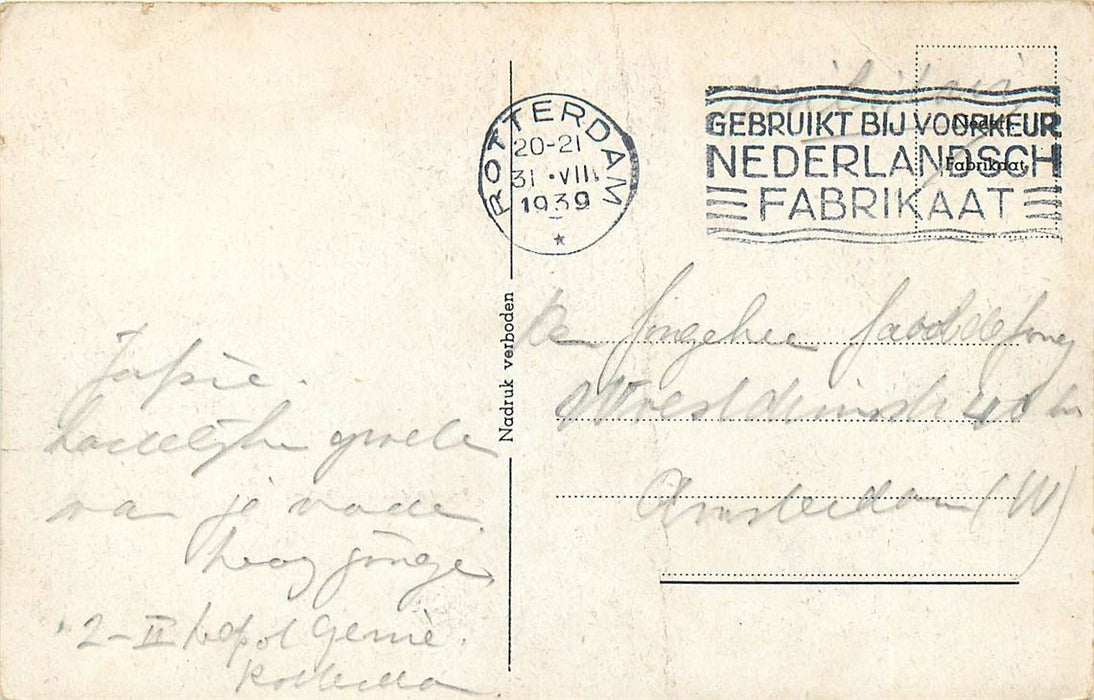 militair
ROTTERDAM
20-21
31 · VIII
1939
GEBRUIKT BIJ VOORKEUR
NEDERLANDSCH
FABRIKAAT
Nederl.
Fabrikaat
Nadruk verboden
Japie.
hartelijke groete
van je vader.
2-II Depot Genie.
Rotterdam
Den Jongeheer de Jong
Amsterdam (W)